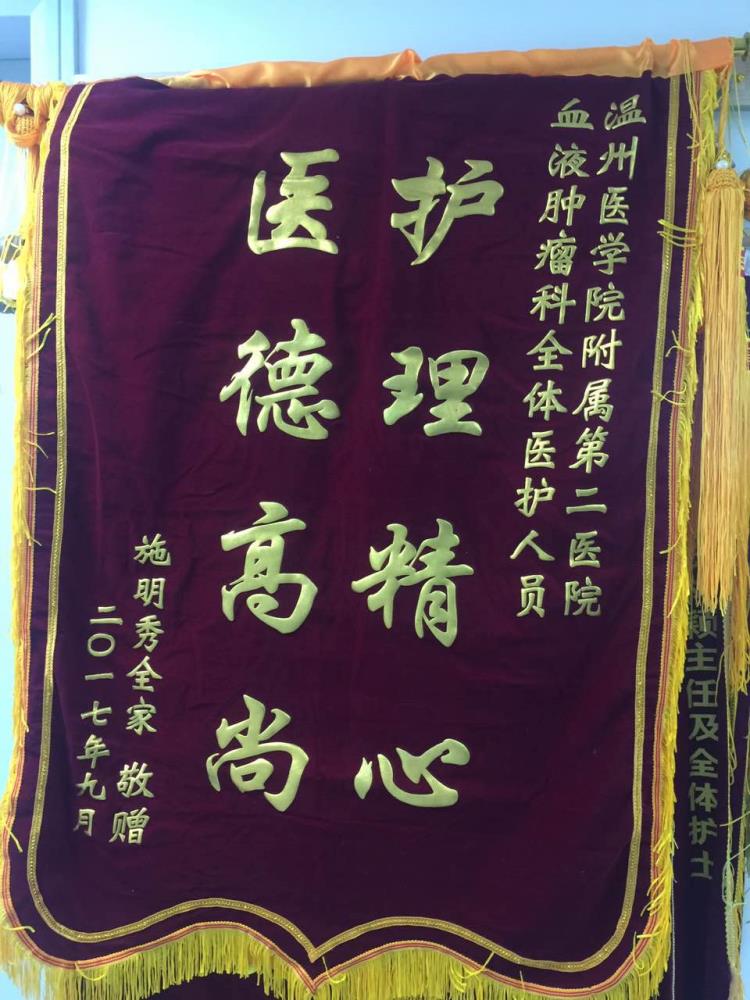 温州医学院附属第二医院
血液肿瘤科全体医护人员
护理精心
医德高尚
施明秀全家 敬赠
二〇一七年九月
主任及全体护士